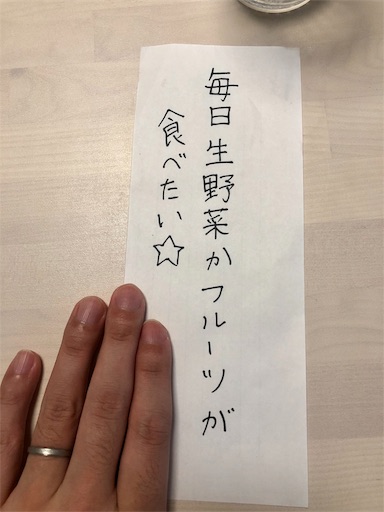 毎日生野菜かフルーツが
食べたい☆